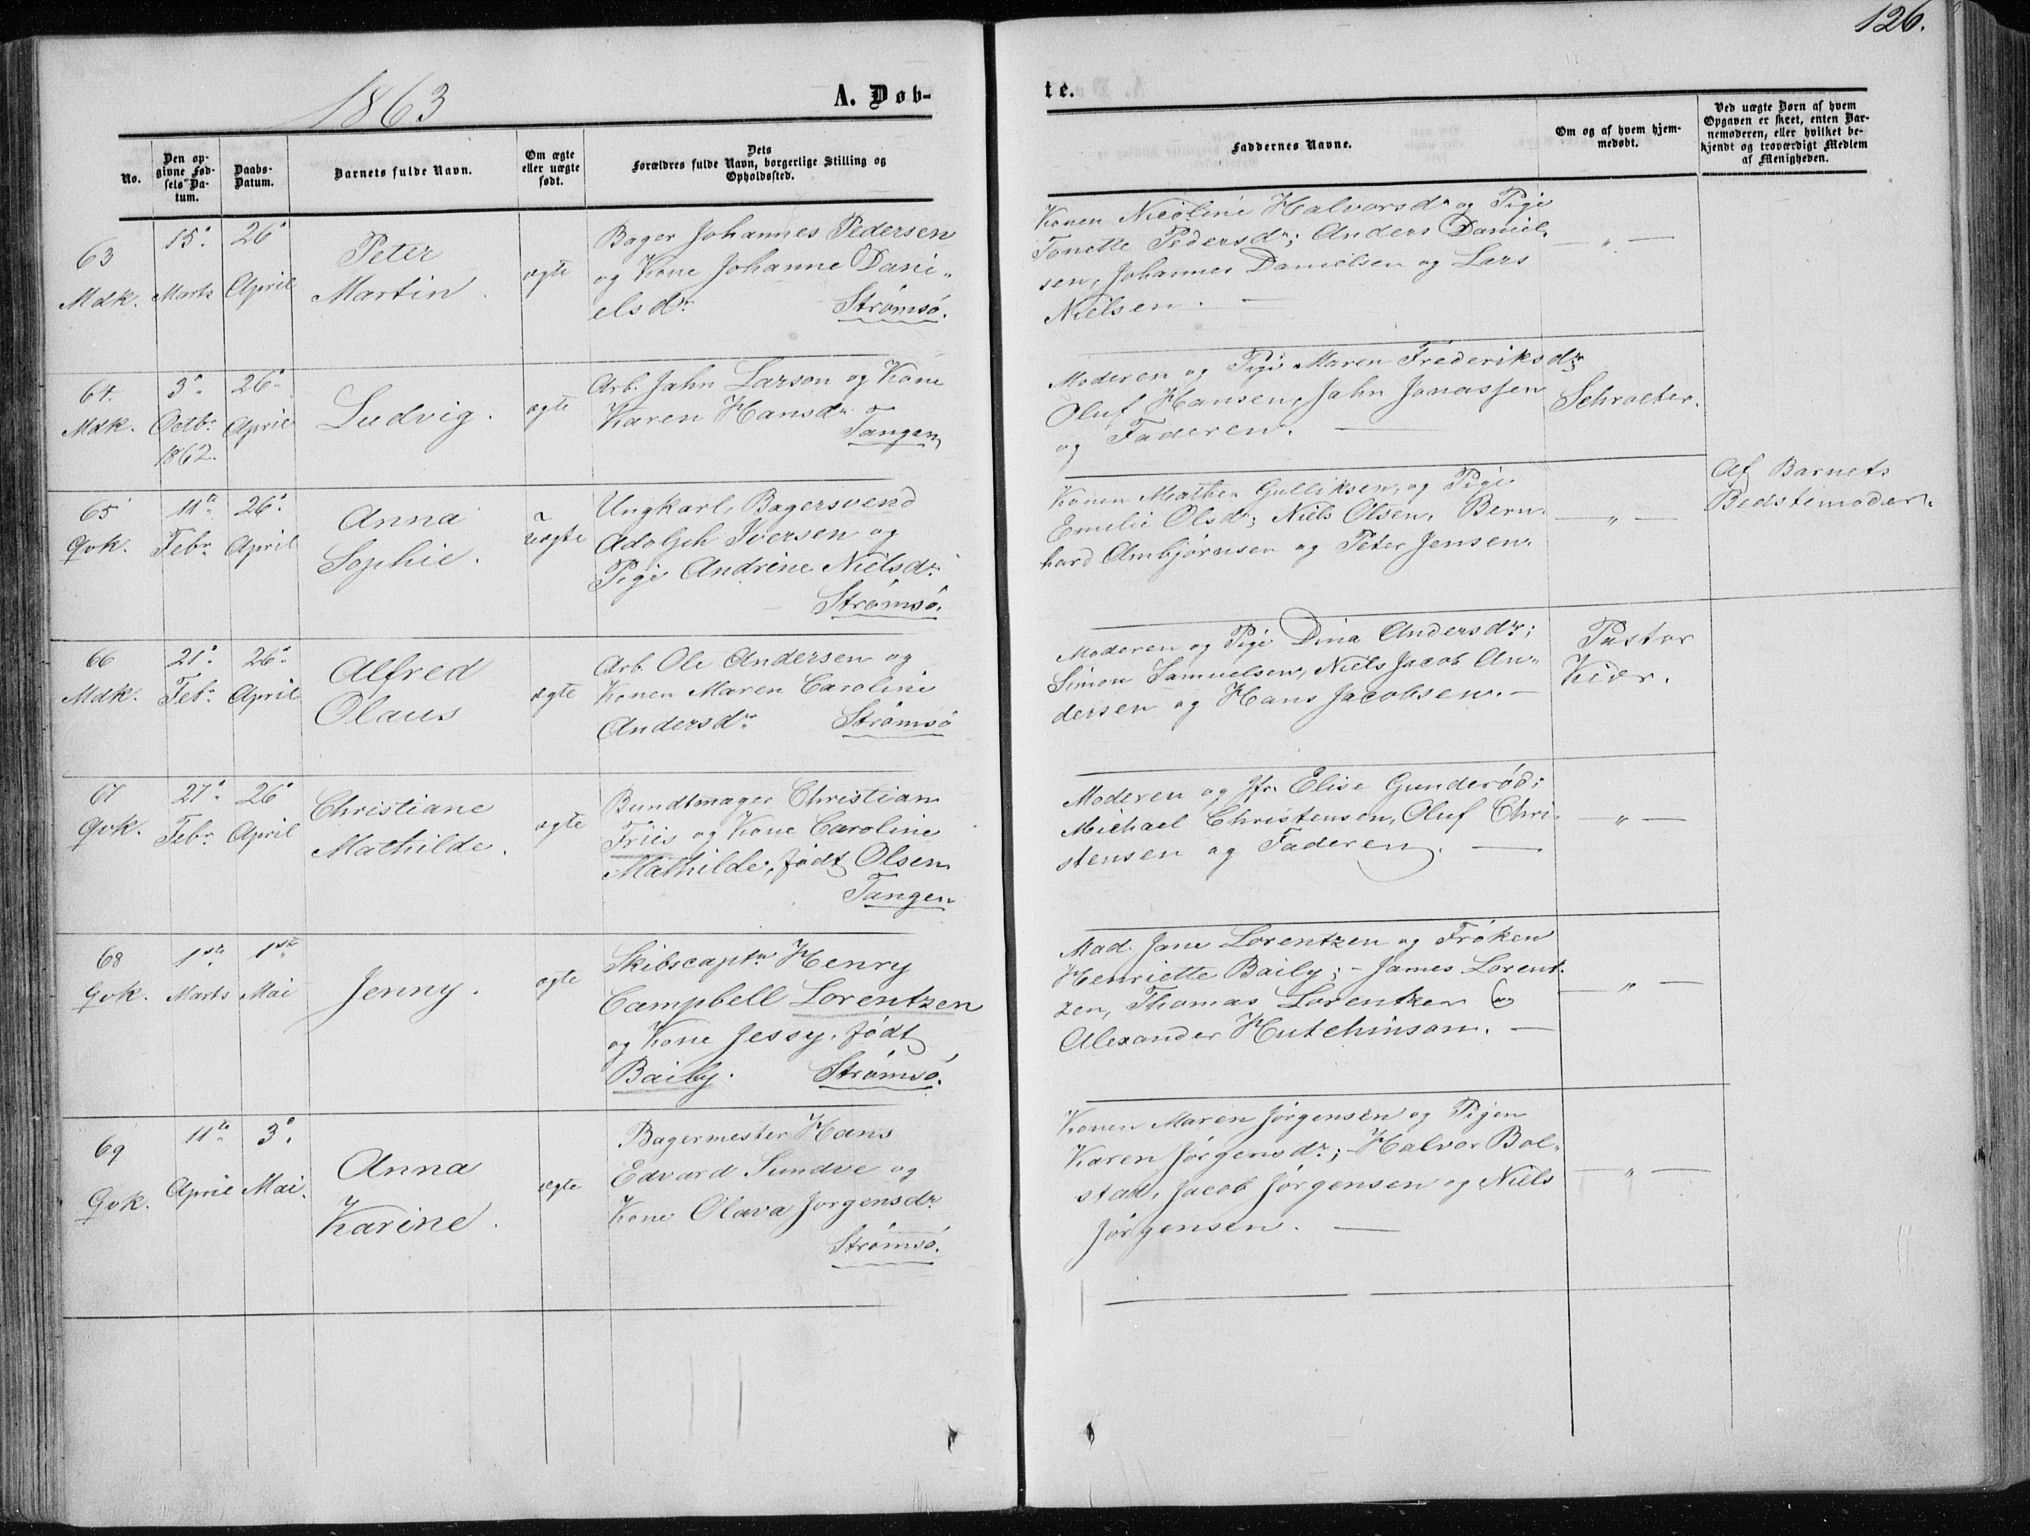 126.
1863
A. Døb-
te.
No.
Den op-
givne Fød-
sels-Da-
tum.
Daabs-
Datum.
Barnets fulde Navn.
Om ægte
eller uægte
født.
Dets
Forældres fulde Navn, borgerlige Stilling og
Opholdssted.
Faddernes Navne.
Om og af hvem hjem-
medøbt.
Ved uægte Børn af hvem
Opgaven er skeet, enten Bar-
nemoderen, eller hvilket be-
kjendt og troværdigt Medlem
af Menigheden.
63
Mdk.
15de
Marts
26de
April
Peter
Martin.
ægte
Bager Johannes Pedersen
og Kone Johanne Dani-
elsdr.
Strømsö.
Konen Nicoline Halvorsdr og Pige
Tonette Pedersdr; Anders Daniel-
sen, Johannes Danielsen og Lars
Nielsen. —
— " —
64.
Mdk.
3de
Octbr.
1862.
26de
April
Ludvig.
ægte
Arb. Jahn Larson og Kone
Karen Hansdr.
Tangen
Moderen og Pige Maren Frederiksdr;
Oluf Hansen, Jahn Jonassen
og Faderen. —
Schroeter.
65
Qvk.
11te
Febr.
26de
April
Anna
Sophie.
uægte
Ungkarl, Bagersvend
Adolph Iversen og
Pige Andrine Nielsdr.
Strømsö.
Konen Mathea Gulliksen, og Pige
Emelie Olsdr; Niels Olsen, Bern-
hard Ambjørnsen og Peter Jensen.
— " —
Af Barnets
Bedstemoder.
66
Mdk.
21de
Febr.
26de
April
Alfred
Olaus
ægte
Arb. Ole Andersen og
Konen Maren Caroline
Andersdr.
Strømsö
Moderen og Pige Dina Andersdr;
Simon Samuelsen, Niels Jacob An-
dersen og Hans Jacobsen. —
Pastor
Kiær.
67
Qvk.
27de
Febr.
26de
April
Christiane
Mathilde.
ægte
Bundtmager Christian
Friis og Kone Caroline
Mathilde, födt Olsen
Tangen
Moderen og Jfr. Elise Gunderød;
Michael Christensen, Oluf Chri-
stensen og Faderen. —
— " —
68
Qvk.
1ste
Marts
1ste
Mai
Jenny.
ægte
Skibscaptn Henry
Campbell Lorentzen
og Kone Jessy, födt
Baily.
Strømsö.
Mad. Jane Lorentzen og Fröken
Henriette Baily; - James Lorent-
zen, Thomas Lorentzen og
Alexander Hutchinson. —
— " —
69
Qvk.
11te
April
3de
Mai.
Anna
Karine.
ægte
Bagermester Hans
Edvard Sundve og
Kone Olava Jørgensdr.
Strømsö.
Konen Maren Jørgensen og Pigen
Karen Jørgensdr; - Halvor Bol-
stad, Jacob Jørgensen og Niels
Jørgensen. —
— " —